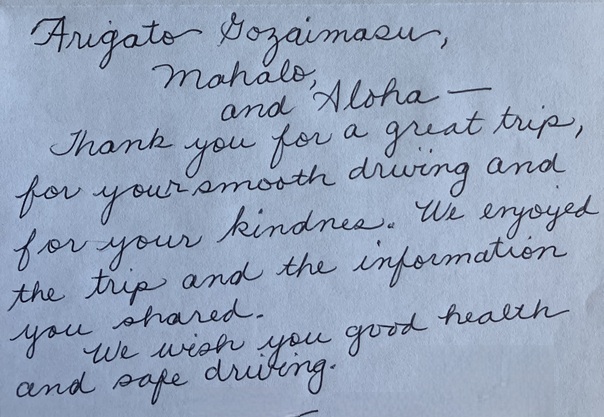 Arigato Gozaimasu,
Mahalo,
and Aloha —
Thank you for a great trip,
for your smooth driving and
for your kindnes. We enjoyed
the trip and the information
you shared.
We wish you good health
and safe driving.